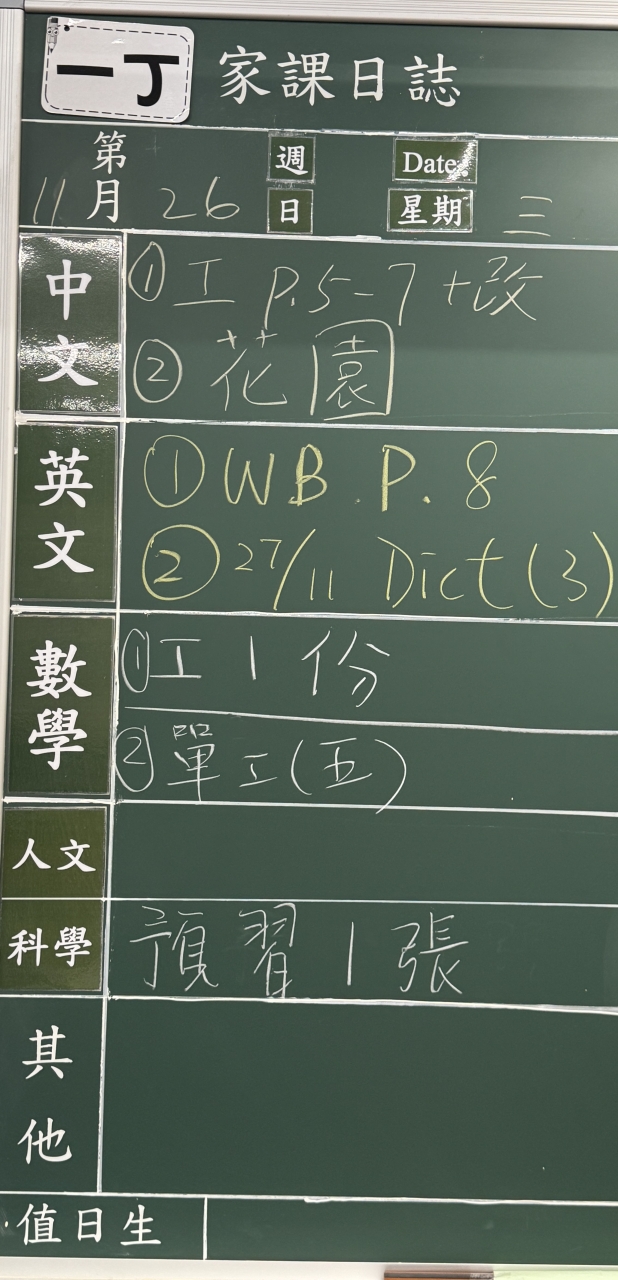 一丁 家課日誌
第 週 Date:
11月 26 日 星期 三
中文 ① 工 P.5-7 +改
② 花園
英文 ① WB. P. 8
② 27/11 Dict (3)
數學 ① 工 1 份
② 單工(五)
人文
科學 預習 1 張
其他
值日生